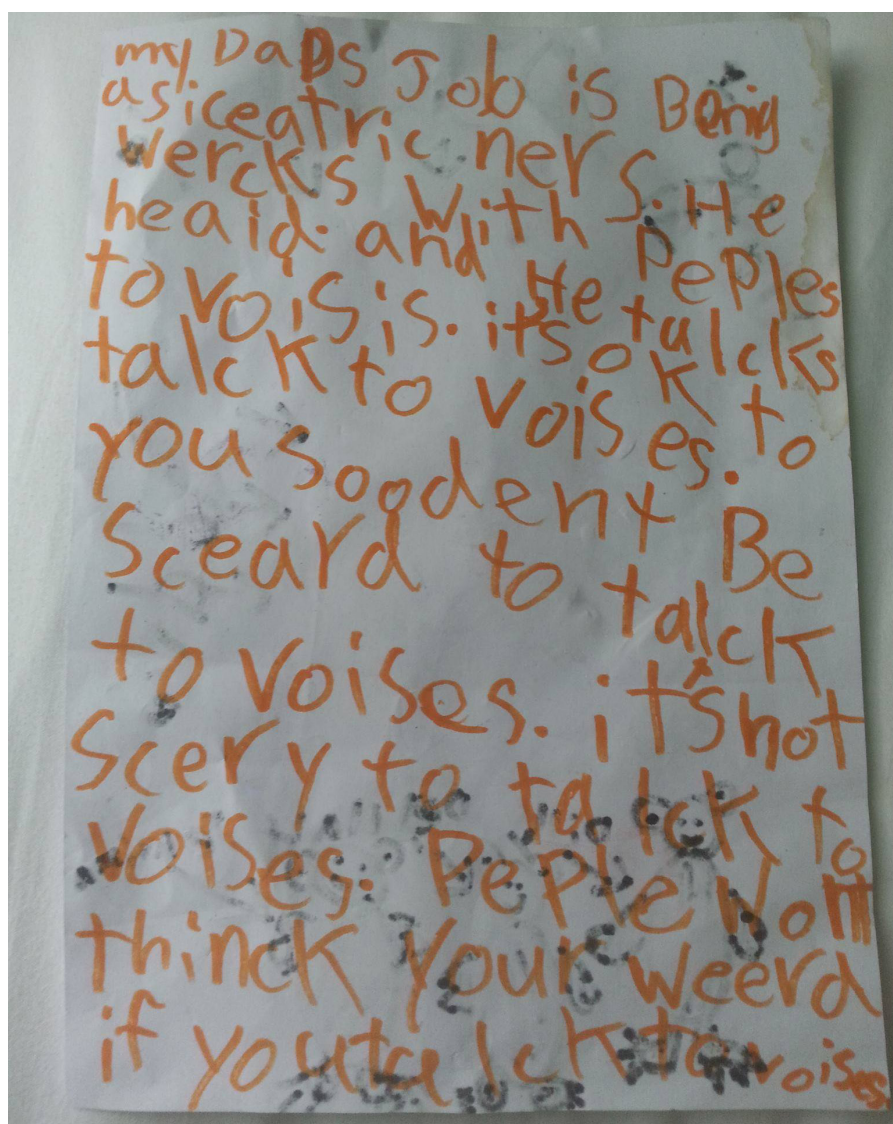 my DaDs Job is Being
asiceatric ners. He
wercks with Peples
heaid. and He talcks
to voisis. it's ok to
talck to voises.
you soodent Be
Sceard to talck
to voises. it's not
Scery to talck to
voises. Peple wont
thinck your weerd
if you talck to voises.